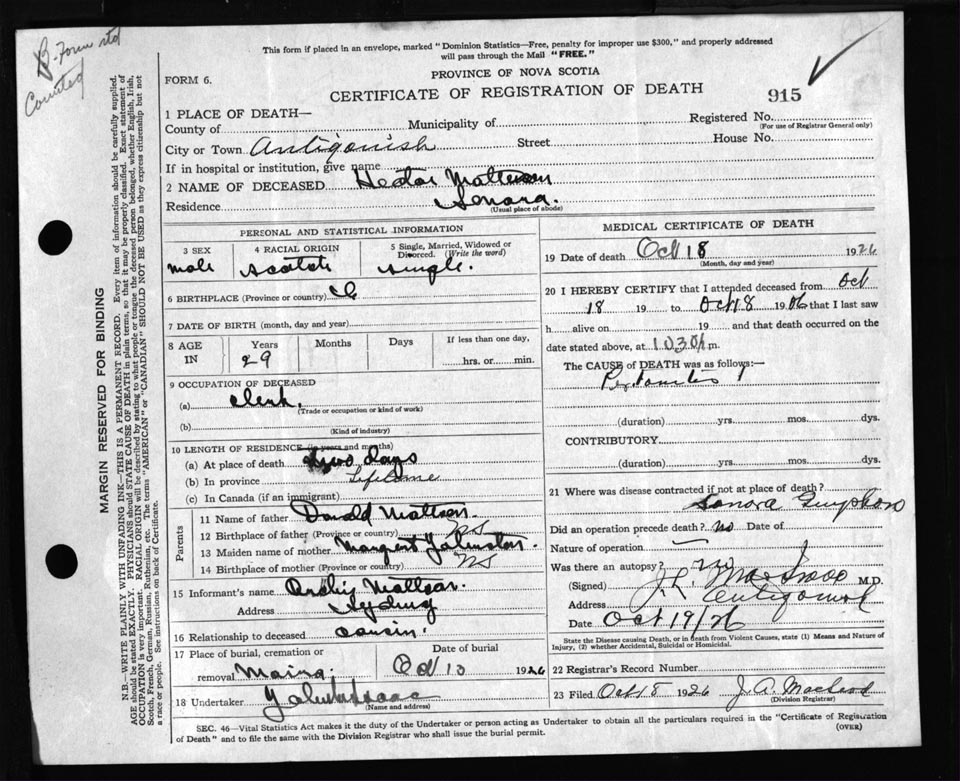 B. Form std
Counted
This form if placed in an envelope, marked "Dominion Statistics—Free, penalty for improper use $300," and properly addressed
will pass through the Mail "FREE."
PROVINCE OF NOVA SCOTIA
FORM 6.
CERTIFICATE OF REGISTRATION OF DEATH
915
1 PLACE OF DEATH—
Registered No.
(For use of Registrar General only)
County of
Municipality of
City or Town Antigonish Street House No.
If in hospital or institution, give name
2 NAME OF DECEASED Hector
Residence Sonora.
(Usual place of abode)
PERSONAL AND STATISTICAL INFORMATION
3 SEX
male
4 RACIAL ORIGIN
Scotch
5 Single, Married, Widowed or Divorced. (Write the word)
Single.
6 BIRTHPLACE (Province or country)
7 DATE OF BIRTH (month, day and year)
8 AGE IN
Years
29
Months
Days
If less than one day,
hrs. or min.
9 OCCUPATION OF DECEASED
(a) Clerk.
(Trade or occupation or kind of work)
(b)
(Kind of industry)
10 LENGTH OF RESIDENCE (in years and months)
(a) At place of death Two days
(b) In province Lifetime
(c) In Canada (if an immigrant)
Parents
11 Name of father Donald
12 Birthplace of father (Province or country) NS
13 Maiden name of mother Margaret Johnston.
14 Birthplace of mother (Province or country) NS
15 Informant's name Archie
Address Sydney
16 Relationship to deceased cousin.
17 Place of burial, cremation or
removal
Date of burial
Oct 1926
18 Undertaker
(Name and address)
MEDICAL CERTIFICATE OF DEATH
19 Date of death Oct 18 1926
(Month, day and year)
20 I HEREBY CERTIFY that I attended deceased from Oct
18 19 to Oct 18 1926 that I last saw
h alive on 19 and that death occurred on
date stated above, at m.
The CAUSE of DEATH was as follows:
Peritonitis
(duration) yrs. mos. dys.
CONTRIBUTORY
(duration) yrs. mos. dys.
21 Where was disease contracted if not at place of death?
Sonora
Did an operation precede death? no Date of
Nature of operation —
Was there an autopsy? no
(Signed) M.D.
Address Antigonish
Date Oct 19/26
State the Disease causing Death, or in death from Violent Causes, state (1) Means and Nature of
Injury, (2) whether Accidental, Suicidal or Homicidal.
22 Registrar's Record Number
23 Filed Oct 18 1926 J. A. Macleod
(Division Registrar)
SEC. 46—Vital Statistics Act makes it the duty of the Undertaker or person acting as Undertaker to obtain all the particulars required in the "Certificate of Registration
of Death" and to file the same with the Division Registrar who shall issue the burial permit.
(OVER)
MARGIN RESERVED FOR BINDING
N.B.—WRITE PLAINLY WITH UNFADING INK—THIS IS A PERMANENT RECORD. Every item of information should be carefully supplied.
AGE should be stated EXACTLY. PHYSICIANS should STATE CAUSE OF DEATH in plain terms, so that it may be properly classified. Exact statement of
OCCUPATION is very important. RACIAL ORIGIN will be described by stating to what people or tongue the deceased person belonged, whether English, Irish,
Scotch, French, German, Russian, Ruthenian, etc. The terms "AMERICAN" or "CANADIAN" SHOULD NOT BE USED as they express citizenship but not
a race or people. See instructions on back of Certificate.